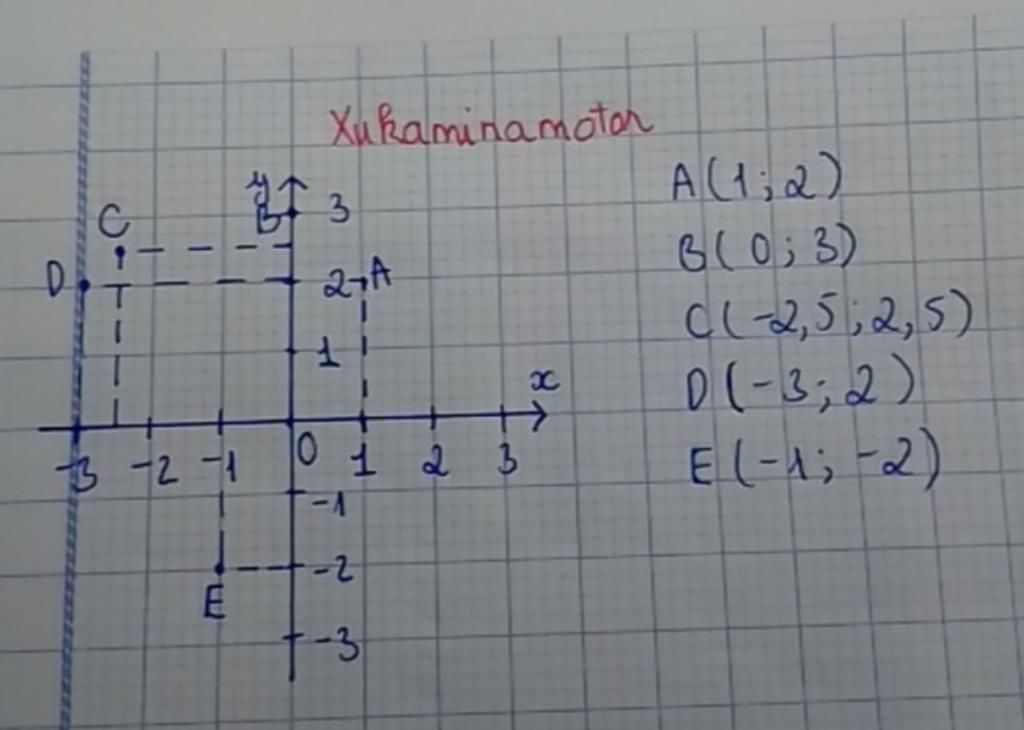 Xukaminamoton
y
B 3
C
D 2 A
1
x
-3 -2 -1 0 1 2 3
-1
-2
E
-3
A(1;2)
B(0;3)
C(-2,5;2,5)
D(-3;2)
E(-1;-2)